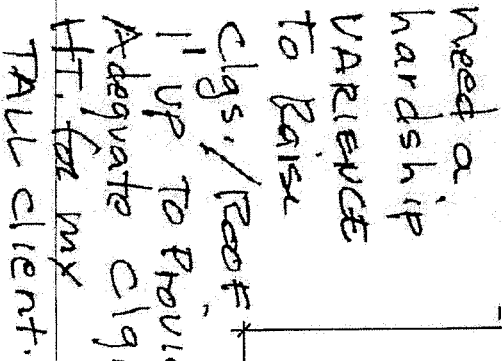 need a
hardship
VARIENCE
To Raise
Clgs./Roof
1" UP To Provi
Adequate Clg
HT. for my
TALL client.